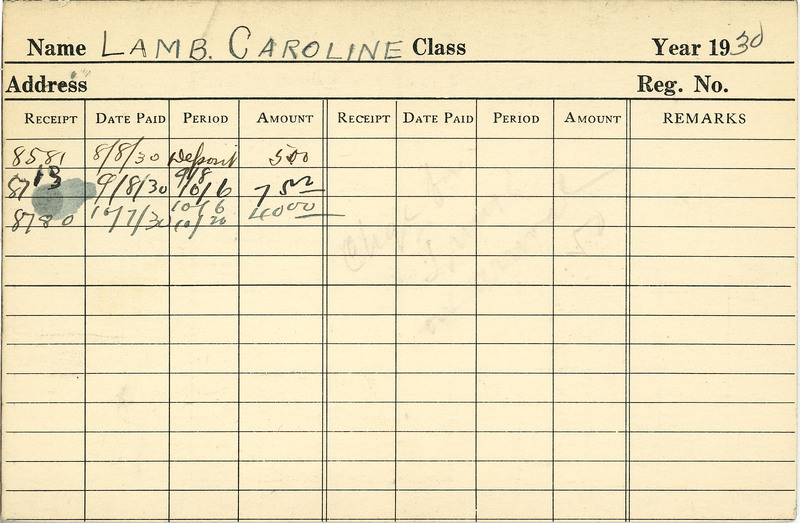 Name LAMB. CAROLINE Class Year 1930
Address Reg. No.
RECEIPT DATE PAID PERIOD AMOUNT RECEIPT DATE PAID PERIOD AMOUNT REMARKS
8581 8/8/30 Deposit 500
8713 9/8/30 9/8 10/6 7500
8780 10/7/30 10/6 10/20 4000